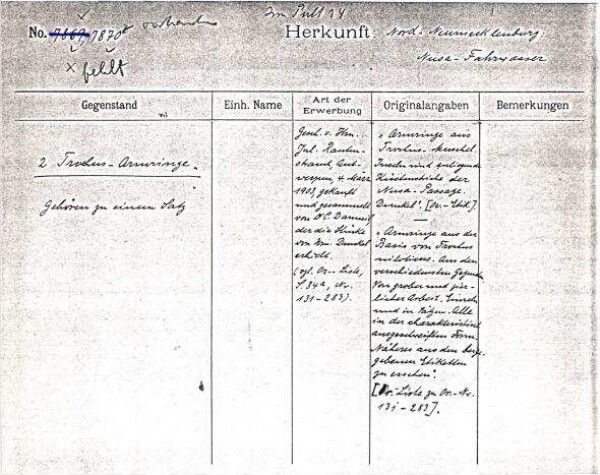 Im Pult 24
No. 7869, 7870 vorhanden
x fehlt
Herkunft: Nord-Neumecklenburg.
Nusa-Fahrwasser
Gegenstand
Einh. Name
Art der
Erwerbung
Originalangaben
Bemerkungen
2 Trochus-Armringe.
Gehören zu einem Satz
Gesch. v. Hrn.
Jul. Rauten-
strauch, Ant-
werpen, 4 März
1903, gekauft
und gesammelt
von
der die Stücke
von Hrn. Dunkel
erhielt.
(vgl. Or-Liste,
S. 34a, Nr.
131-283).
"Armringe aus
Trochus-Muschel.
Inseln und umliegende
Küstenstriche der
Nusa-Passage.
Dunkel". [Or.-Etik].
—
"Armringe aus der
Basis von Trochus
niloticus. Aus den
verschiedensten Gegenden
Von grober und zier-
licher Arbeit. Einzeln
und in Sätzen. Alle
in der charakteristisch
ausgeschweiften Form.
Näheres aus den beige-
gebenen Etiketten
zu ersehen".
[Or-Liste zu Or-Nr.
131-283].